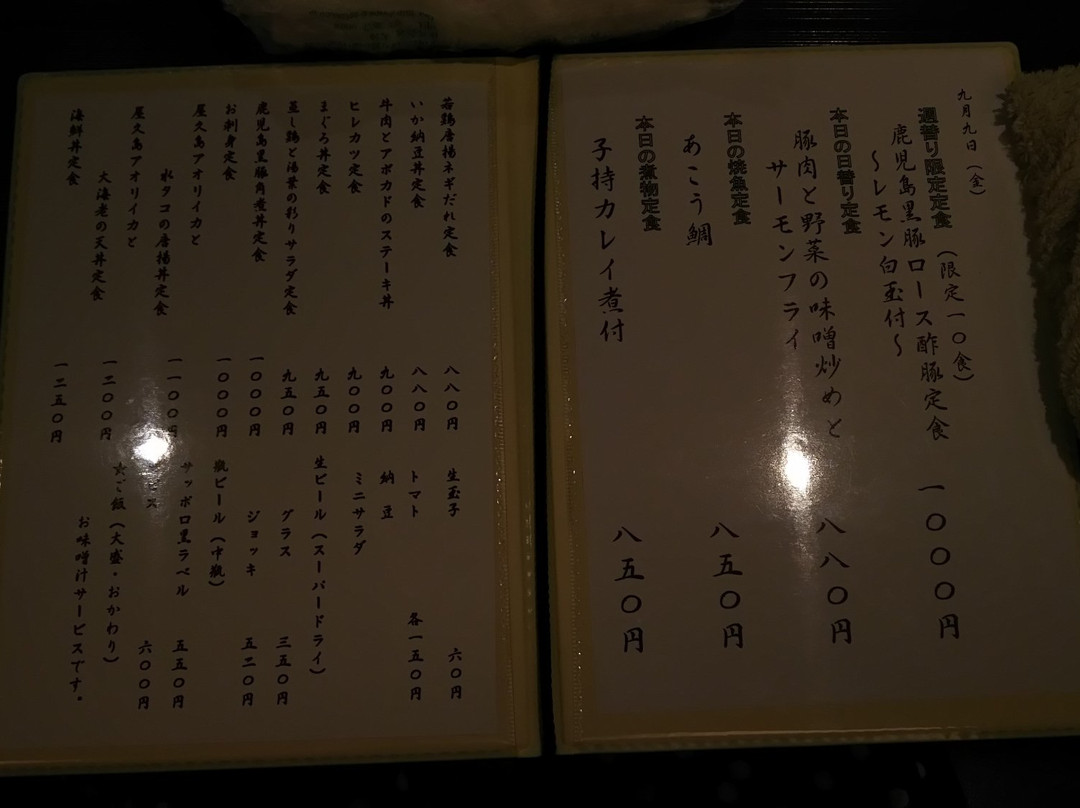 九月九日（金）
週替り限定定食（限定一〇食）
鹿児島黒豚ロース酢豚定食 一〇〇〇円
～レモン白玉付～
本日の日替り定食
豚肉と野菜の味噌炒めと 八八〇円
サーモンフライ
本日の焼魚定食
あこう鯛 八五〇円
本日の煮物定食
子持カレイ煮付 八五〇円
若鶏唐揚ネギだれ定食 八八〇円
いか納豆丼定食 八八〇円
牛肉とアボカドのステーキ丼 九〇〇円
ヒレカツ定食 九〇〇円
まぐろ丼定食 九五〇円
蒸し鶏と湯葉の彩りサラダ定食 九五〇円
鹿児島黒豚角煮丼定食 一〇〇〇円
お刺身定食 一〇〇〇円
屋久島アオリイカと
水タコの唐揚丼定食 一一〇〇円
屋久島アオリイカと
大海老の天丼定食 一二〇〇円
海鮮丼定食 一二五〇円
生玉子 六〇円
トマト
納豆 各一五〇円
ミニサラダ
生ビール（スーパードライ）
グラス 三五〇円
ジョッキ 五二〇円
瓶ビール（中瓶）
サッポロ黒ラベル 五五〇円
ビス 六〇〇円
☆ご飯（大盛・おかわり）
お味噌汁サービスです。